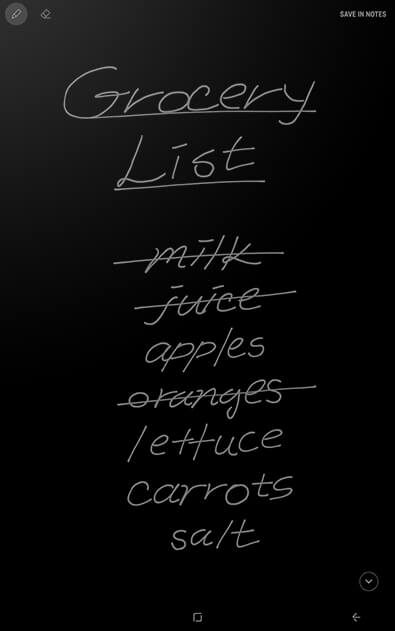 SAVE IN NOTES
Grocery
List
milk
juice
apples
oranges
lettuce
carrots
salt